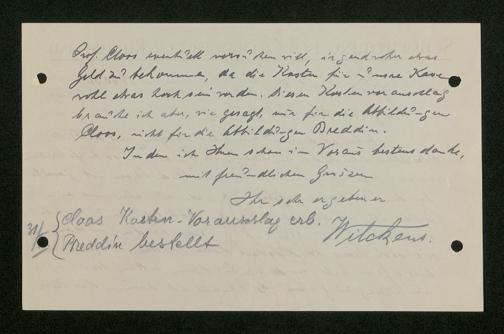 Prof. Cloos eventuell versuchen will, irgendwoher etwas
Geld zu bekommen, da die Kosten für unsere Kasse
wohl etwas hoch sein werden. Diesen Kostenvoranschlag
brauche ich aber, wie gesagt, nur für die Abbildungen
Cloos, nicht für die Abbildungen Breddin.
Indem ich Ihnen schon im Voraus bestens danke,
mit freundlichen Grüssen
Ihr sehr ergebener
Cloos Kosten-Voranschlag erb. Wilckens.
Breddin bestellt